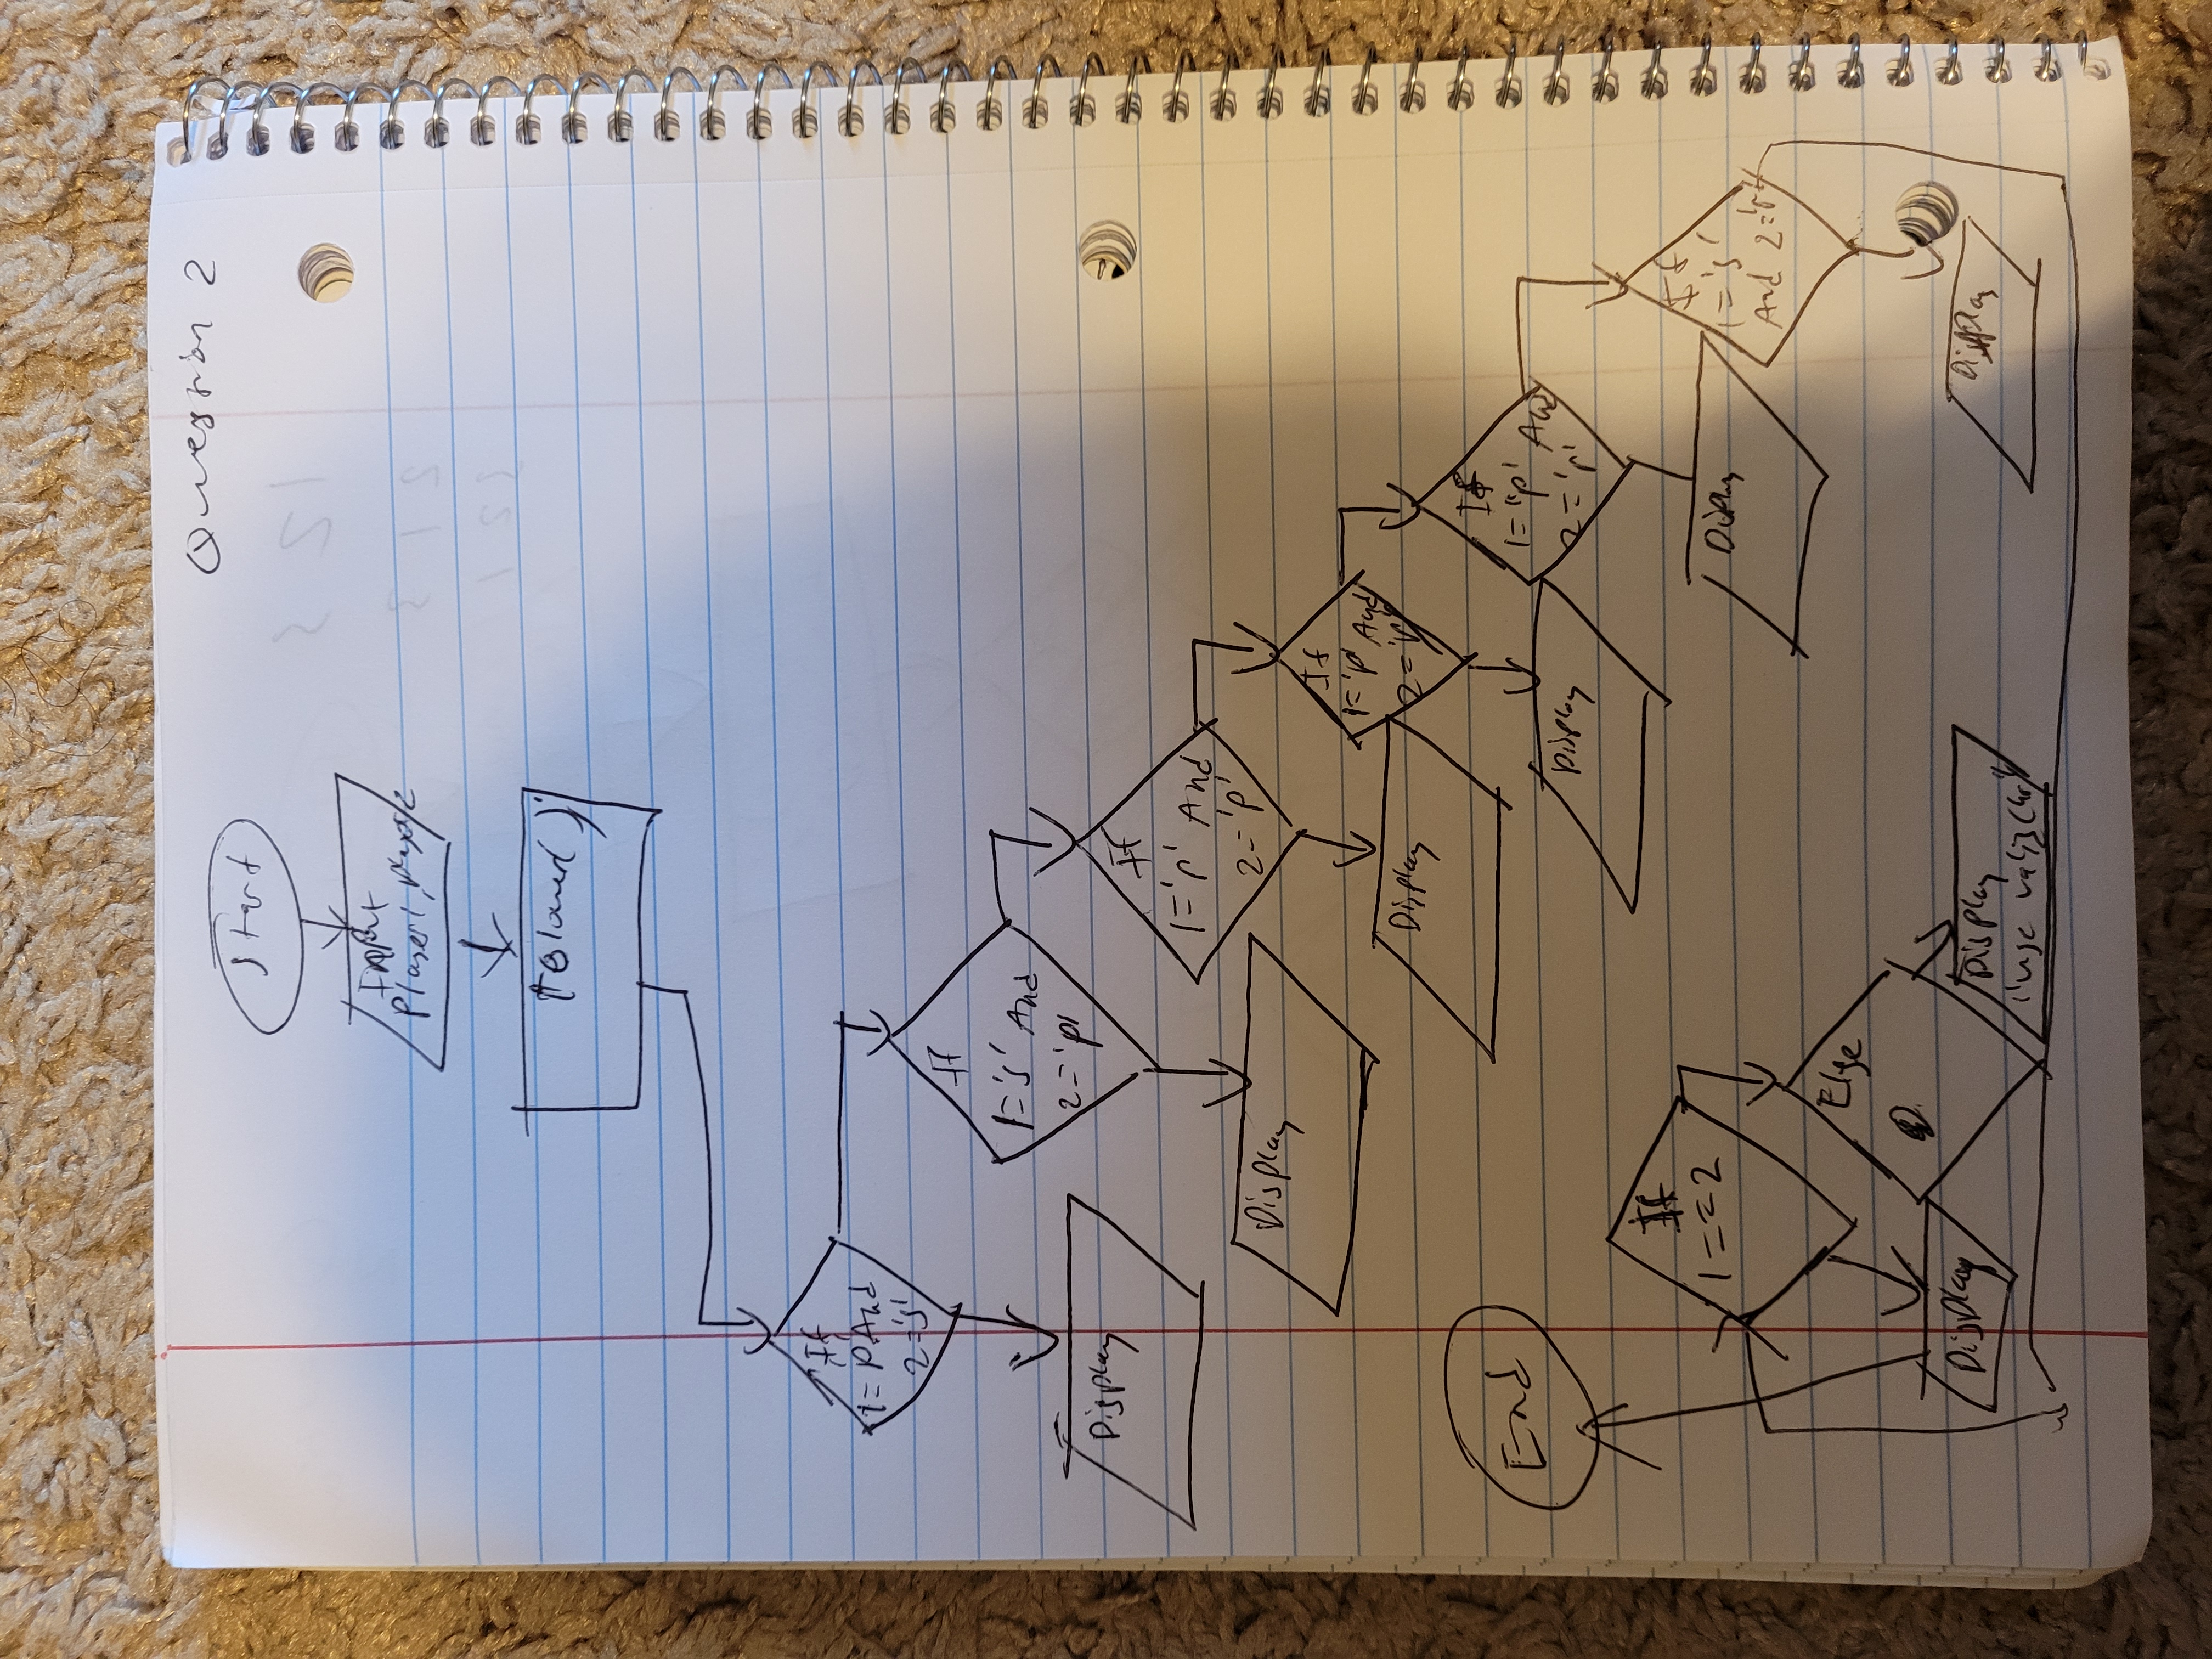 Question 2
Start
Input
Player1, player2
tolower( )
If
1= P And
2='s'
Display
If
1='s' And
2='p'
Display
If
1='r' And
2='p'
Display
If
1='p' And
2='r'
Display
If
1="p' And
2='r'
Display
If
1='s'
And 2='r'
Display
End
If
1==2
Display
Else
Display